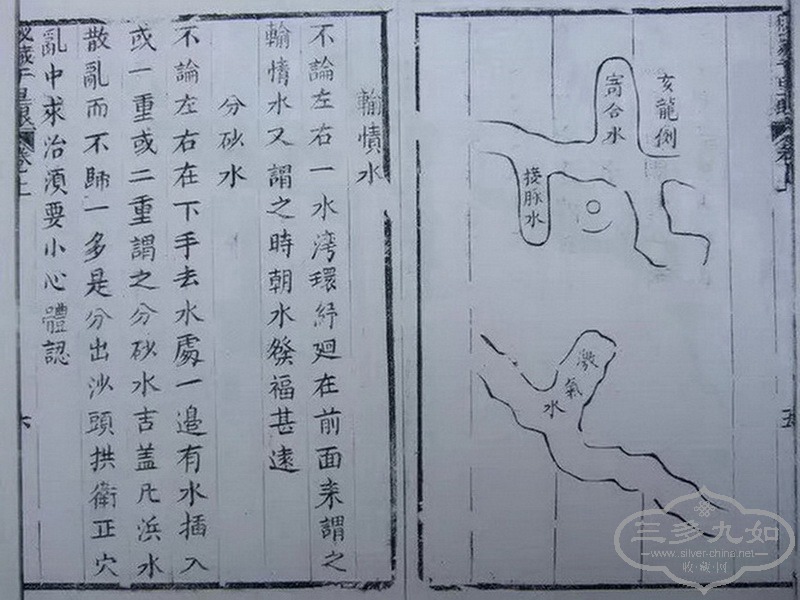 亥龍例
寄合水
接脉水
激氣水
五
輸情水
不論左右一水湾環紆廻在前面来謂之
輸情水又謂之時朝水發福甚遠
分砂水
不論左右在下手去水處一邊有水插入
或一重或二重謂之分砂水吉盖凡浜水
散亂而不歸一多是分出沙頭拱衛正穴
亂中求治須要小心體認
六
三多九如
www.silver-china.net
收·藏·网